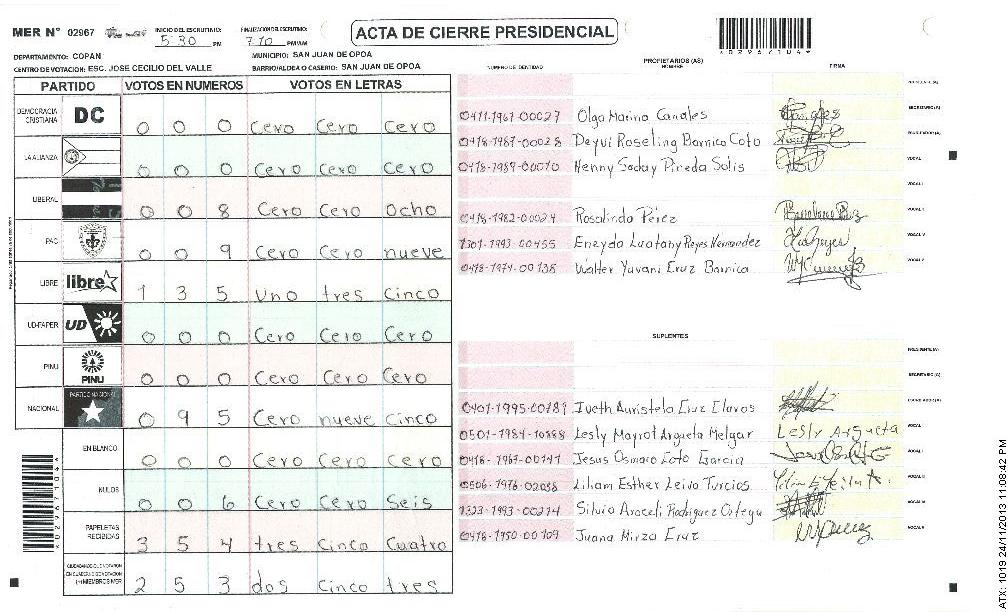 MER N° 02967
INICIO DEL ESCRUTINIO:
5:30 PM
FINALIZACION DEL ESCRUTINIO:
7:10 PM/AM
ACTA DE CIERRE PRESIDENCIAL
*029671044*
DEPARTAMENTO: COPAN
MUNICIPIO: SAN JUAN DE OPOA
CENTRO DE VOTACION: ESC. JOSE CECILIO DEL VALLE
BARRIO/ALDEA O CASERIO: SAN JUAN DE OPOA
PARTIDO VOTOS EN NUMEROS VOTOS EN LETRAS
DEMOCRACIA CRISTIANA DC 0 0 0 Cero Cero Cero
LA ALIANZA 0 0 0 Cero Cero Cero
LIBERAL 0 0 8 Cero Cero Ocho
PAC 0 0 9 Cero Cero nueve
LIBRE libre 1 3 5 Uno tres Cinco
UD-FAPER UD 0 0 0 Cero Cero Cero
PINU PINU 0 0 0 Cero Cero Cero
NACIONAL PARTIDO NACIONAL 0 9 5 Cero nueve Cinco
EN BLANCO 0 0 0 Cero Cero Cero
NULOS 0 0 6 Cero Cero Seis
PAPELETAS RECIBIDAS 3 5 4 tres Cinco Cuatro
CIUDADANOS QUE VOTARON EN CUADERNO DE VOTACION (+) MIEMBROS MER 2 5 3 dos Cinco tres
PROPIETARIOS (AS)
NUMERO DE IDENTIDAD NOMBRE FIRMA
PRESIDENTE (A)
0411-1961-00027 Olga Marina Canales SECRETARIO (A)
0418-1987-00028 Deyvi Roseling Barnica Coto ESCRUTADOR (A)
0418-1989-00070 Henny Saday Pineda Solis VOCAL
VOCAL I
0418-1982-00024 Rosalinda Pérez
1301-1993-00455 Eneyda Luatany Reyes Hernandez
0418-1974-00138 Walter Yuvani Cruz Barnica
SUPLENTES
PRESIDENTE (A)
SECRETARIO (A)
0401-1995-00781 Iveth Auristela Cruz Claros ESCRUTADOR (A)
0501-1984-10888 Lesly Mayrot Argueta Melgar Lesly Argueta VOCAL
0418-1967-00141 Jesus Osmaro Coto Garcia VOCAL I
0506-1976-02038 Liliam Esther Leiva Turcios
1323-1993-00214 Silvia Araceli Rodriguez Ortega
0418-1950-00109 Juana Mirza Cruz
*029671044*
ATX: 1019 24/11/2013 11:08:42 PM